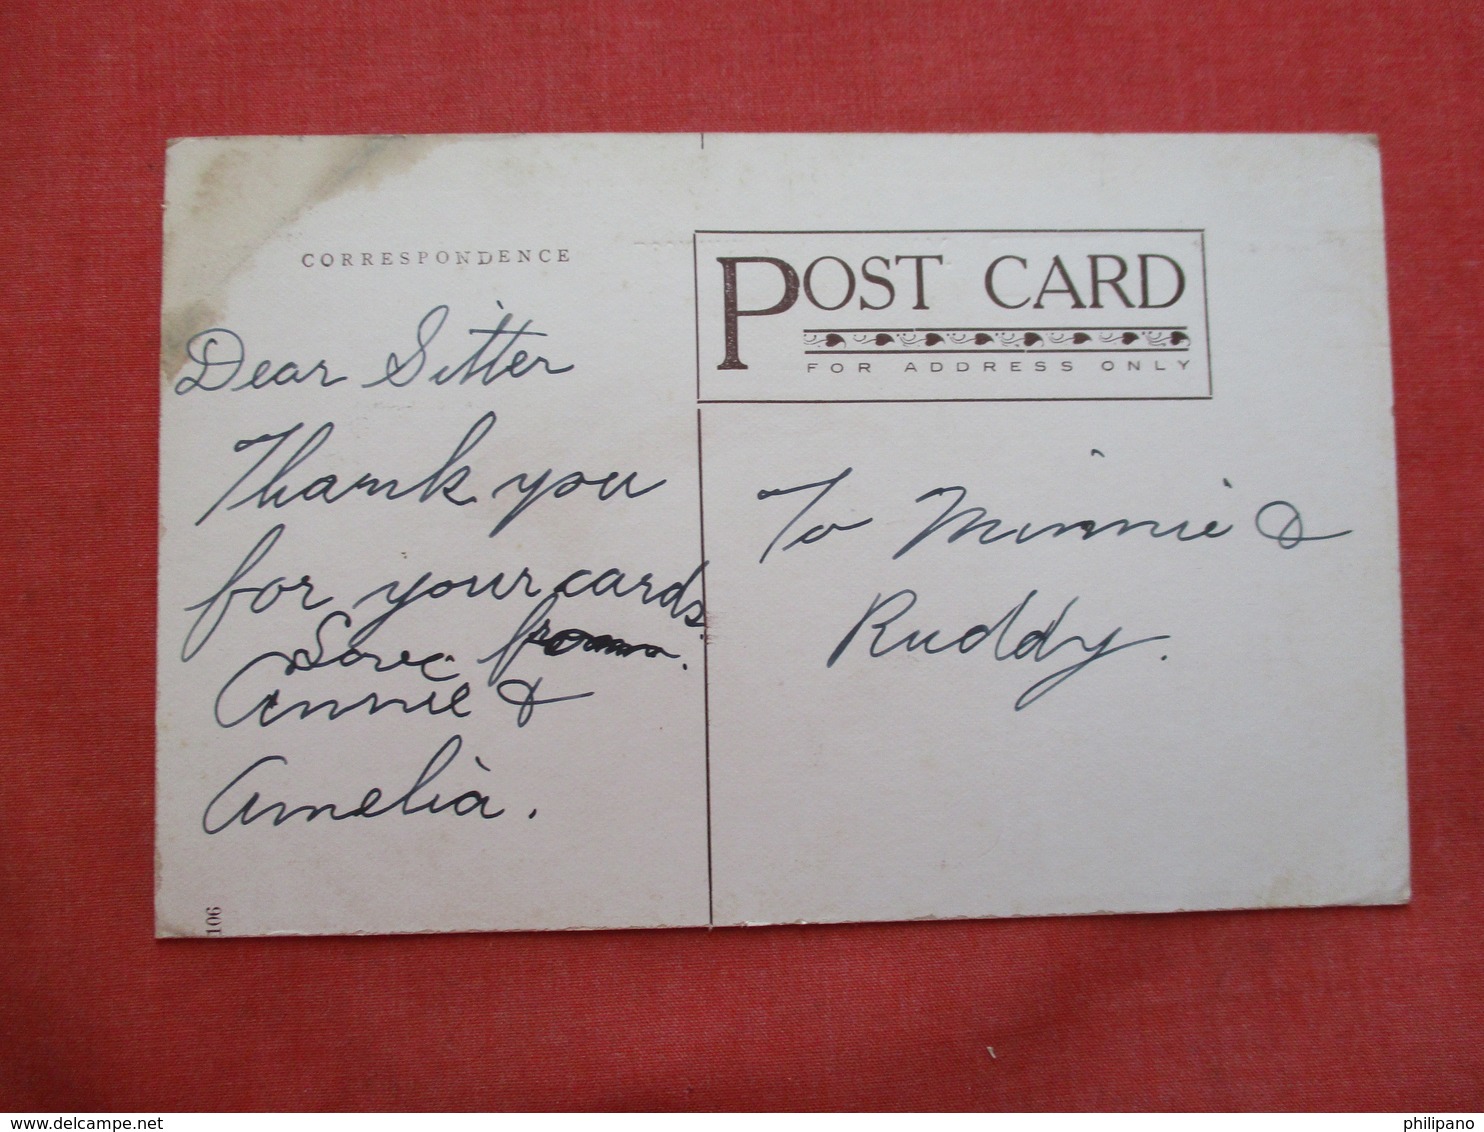 CORRESPONDENCE
Dear Sitter
Thank you
for your cards.
Love from.
Annie &
Amelia.
106
POST CARD
FOR ADDRESS ONLY
To Minnie &
Ruddy.
www.delcampe.net
philipano